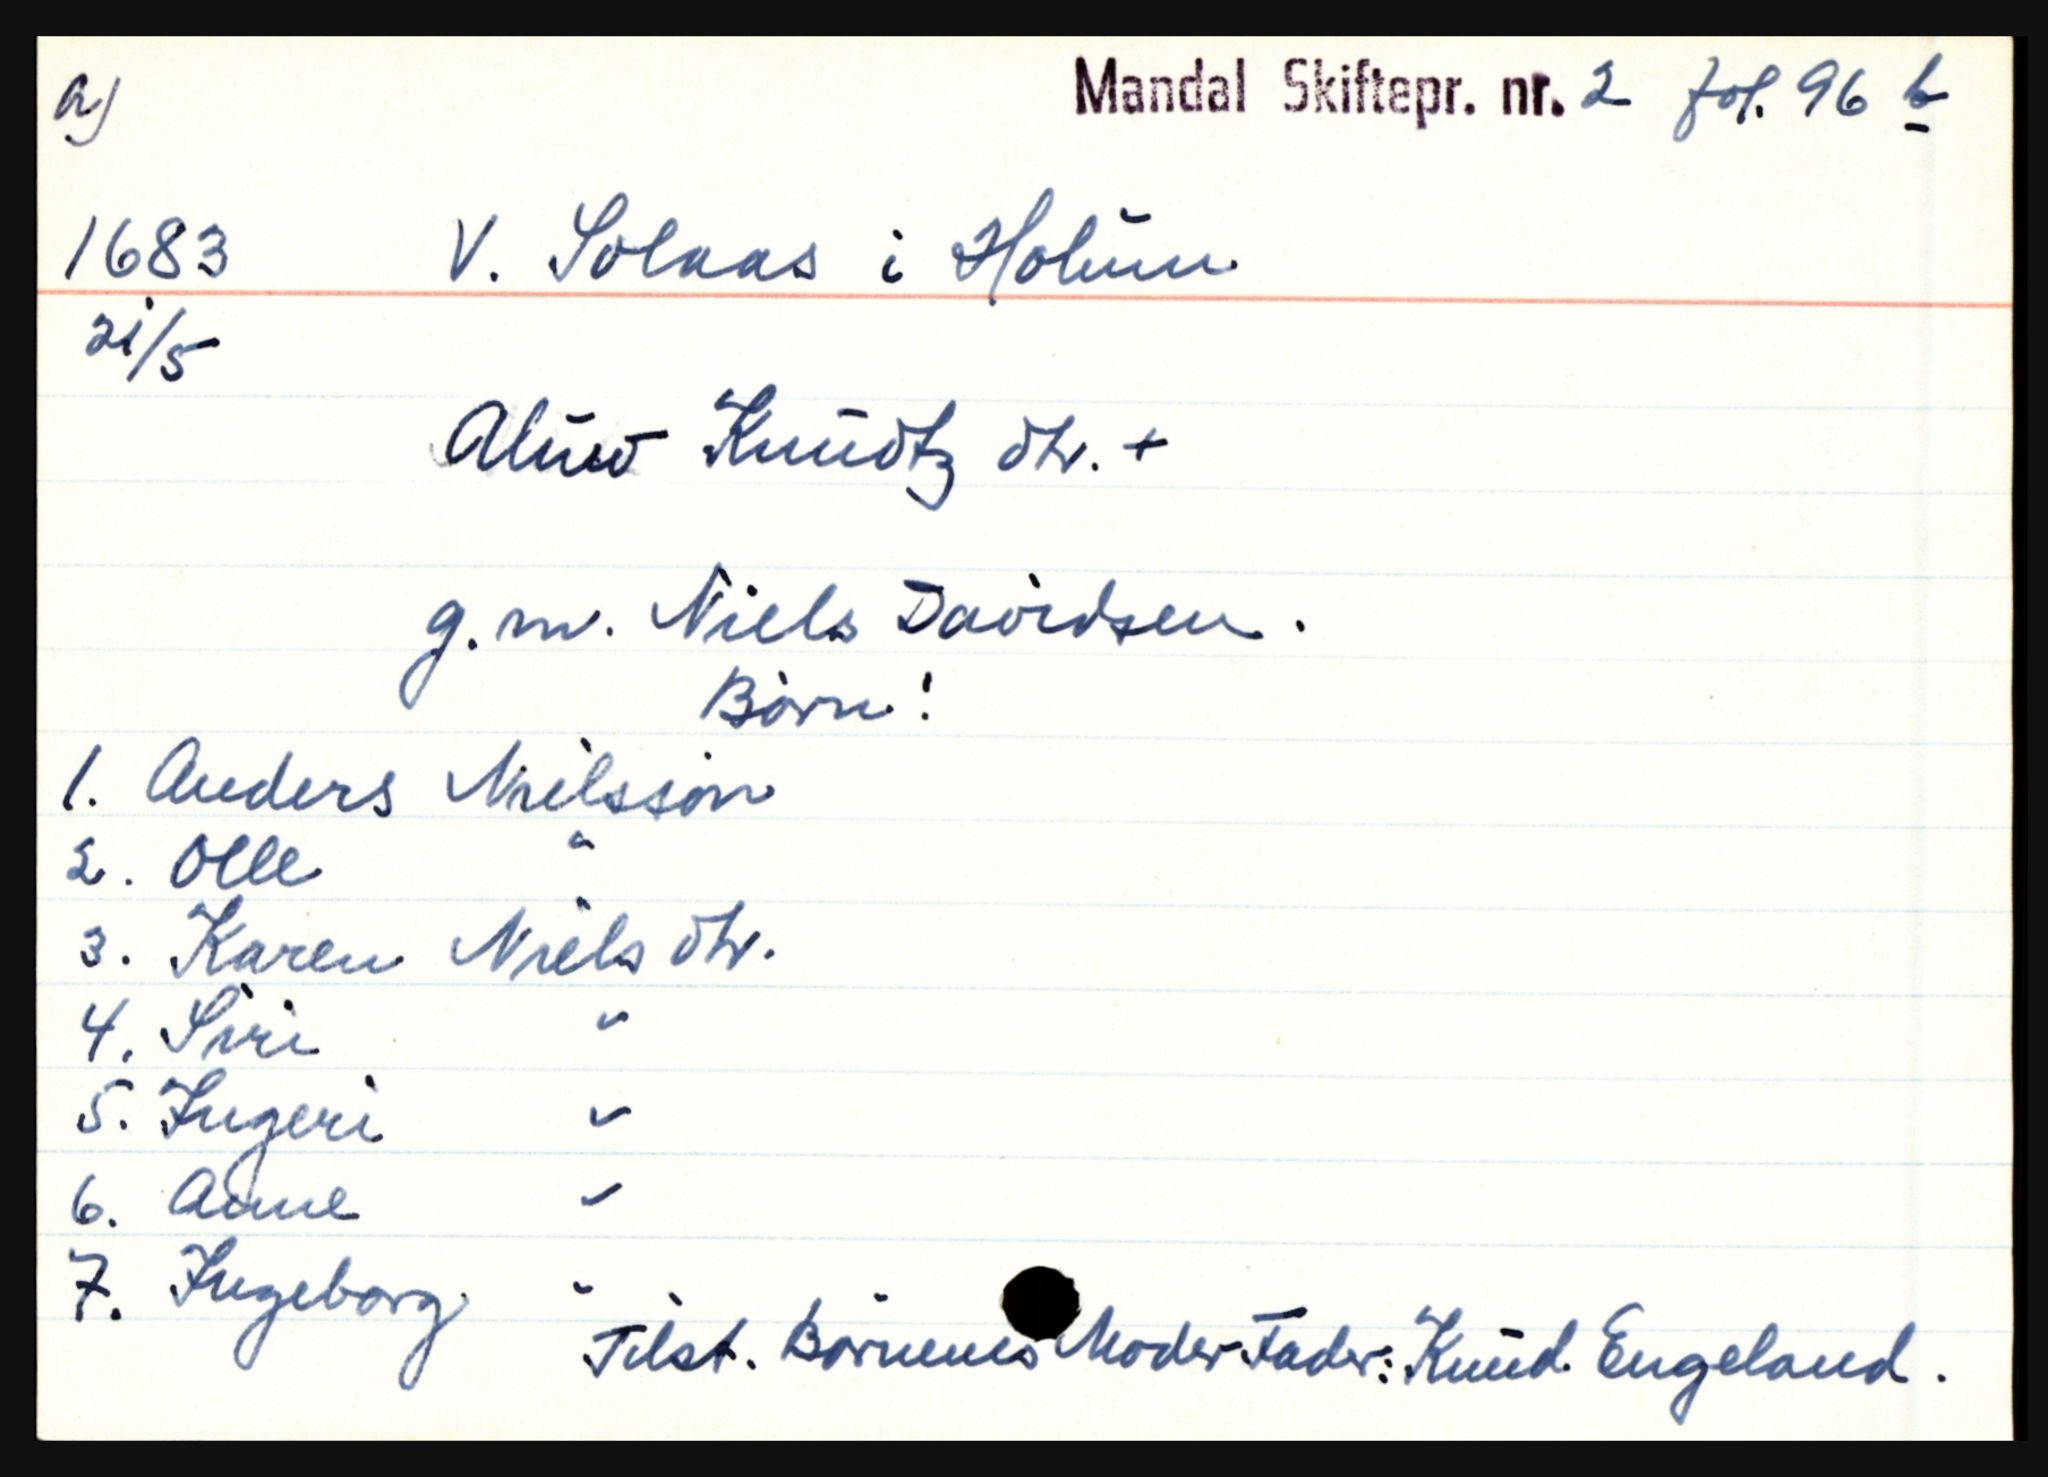 a)
Mandal Skiftepr. nr. 2 fol. 96 b
1683 V. Solaas i Holum
21/5
Knudtz dtr. +
g. m. Niels Davidsen.
Børn:
1. Anders Nielssøn
2. Olle "
3. Karen Niels dtr.
4. Siri "
5. Ingeri "
6. Anne "
7. Ingeborg "
Tilst. Børnenes Moder Fader: Knud Engeland.